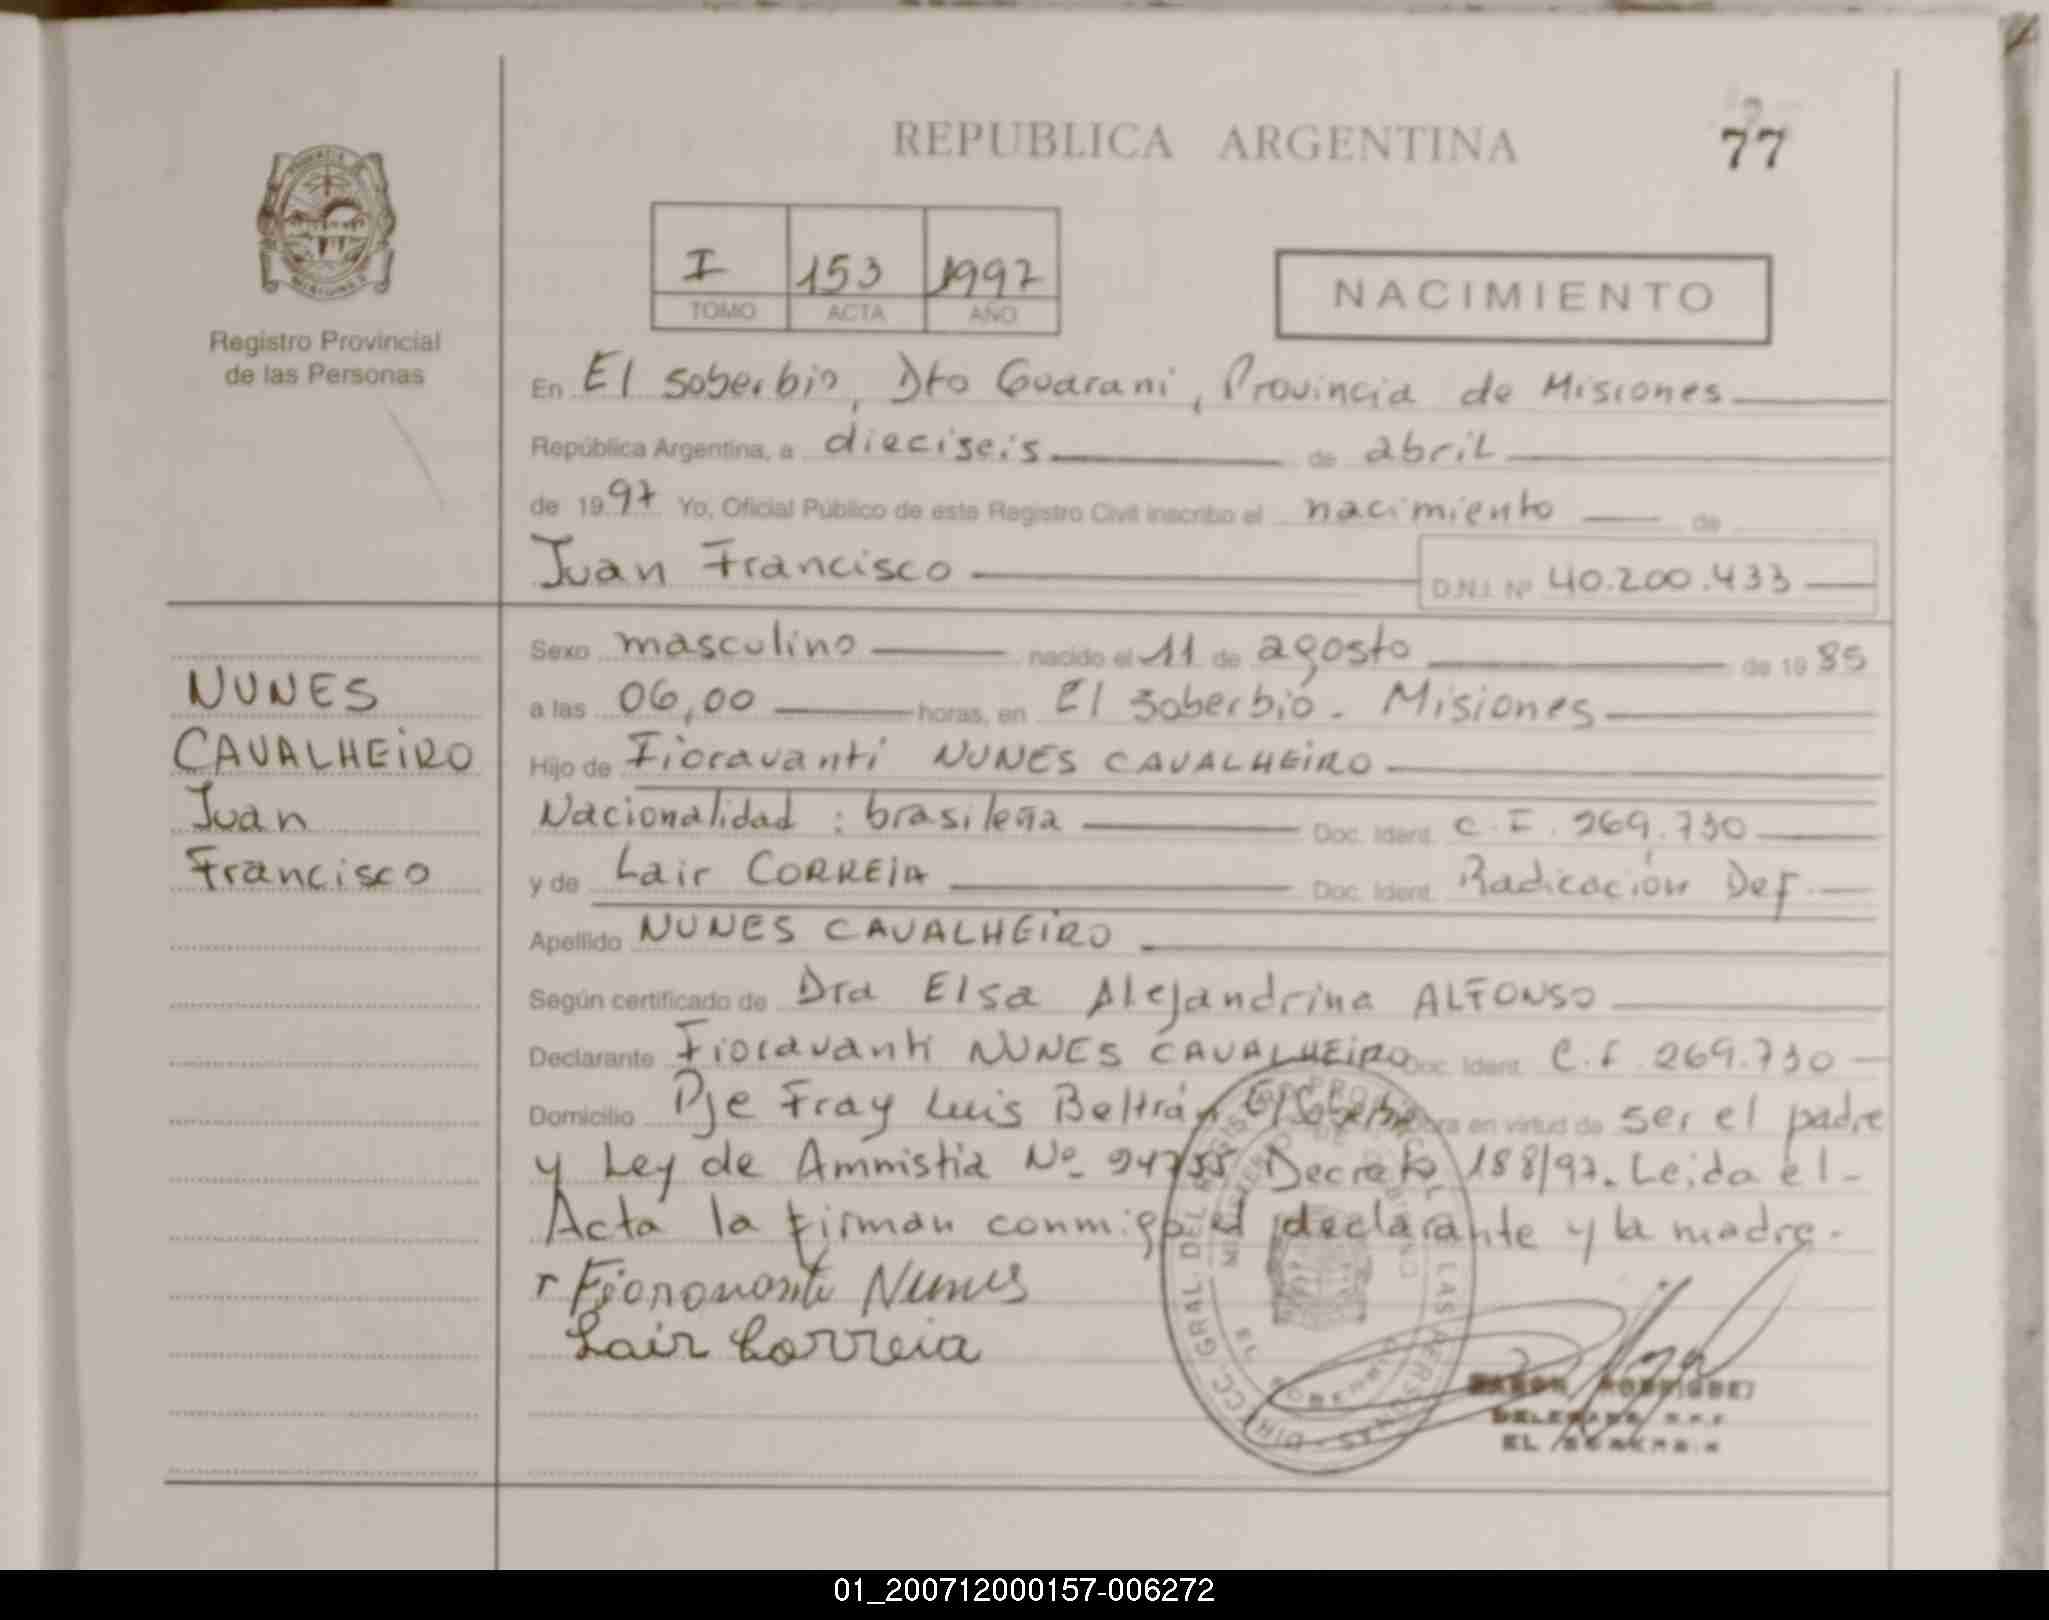 REPUBLICA ARGENTINA
77
I 153 1997
TOMO ACTA AÑO
NACIMIENTO
Registro Provincial
de las Personas
En El soberbio, Dto Guarani, Provincia de Misiones
República Argentina, a dieciseis de abril
de 1997 Yo, Oficial Público de este Registro Civil inscribo el nacimiento de
Juan Francisco D.N.I. Nº 40.200.433
NUNES
CAVALHEIRO
Juan
Francisco
Sexo masculino nacido el 11 de agosto de 1985
a las 06,00 horas, en El Soberbio - Misiones
Hijo de Fioravanti NUNES CAVALHEIRO
Nacionalidad : brasileña Doc. Ident. C.I. 269.730
y de Lair CORREIA Doc. Ident. Radicación Def.
Apellido NUNES CAVALHEIRO
Según certificado de Dra Elsa Alejandrina ALFONSO
Declarante Fioravanti NUNES CAVALHEIRO Doc. Ident. C.I. 269.730
Domicilio Pje Fray Luis Beltrán El Soberbio en virtud de ser el padre
y Ley de Amnistia Nº 24755 Decreto 188/97. Leida el
Acta la firman conmigo el declarante y la madre.
Nunes
Lair Correia
DIRECC. GRAL. DEL REGISTRO PROVINCIAL DE LAS PERSONAS
RAMON RODRIGUEZ
EL SOBERBIO
01_200712000157-006272